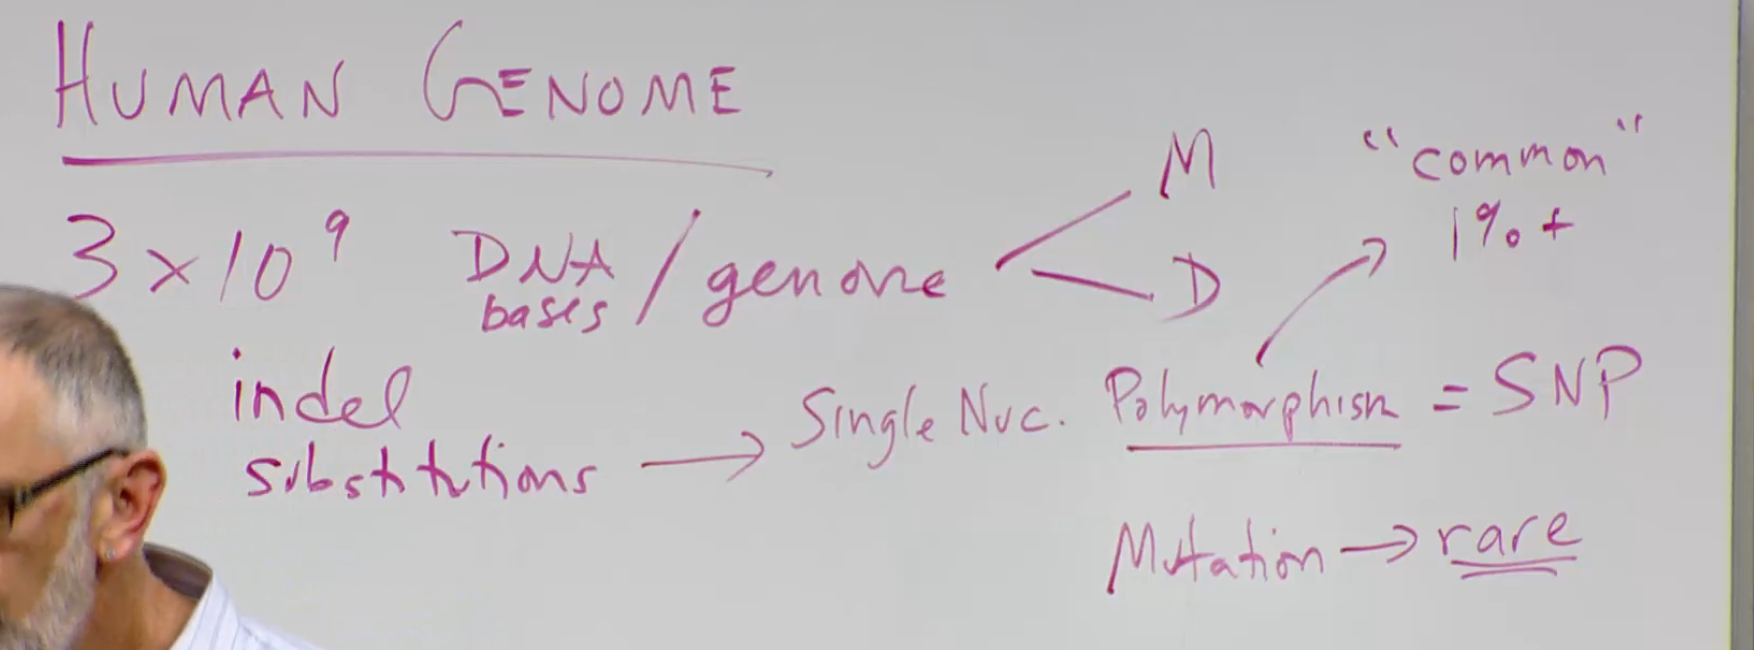 HUMAN GENOME
3 × 10⁹ DNA bases / genome
M
D
"common"
1% +
indel
substitutions → Single Nuc. Polymorphism = SNP
Mutation → rare